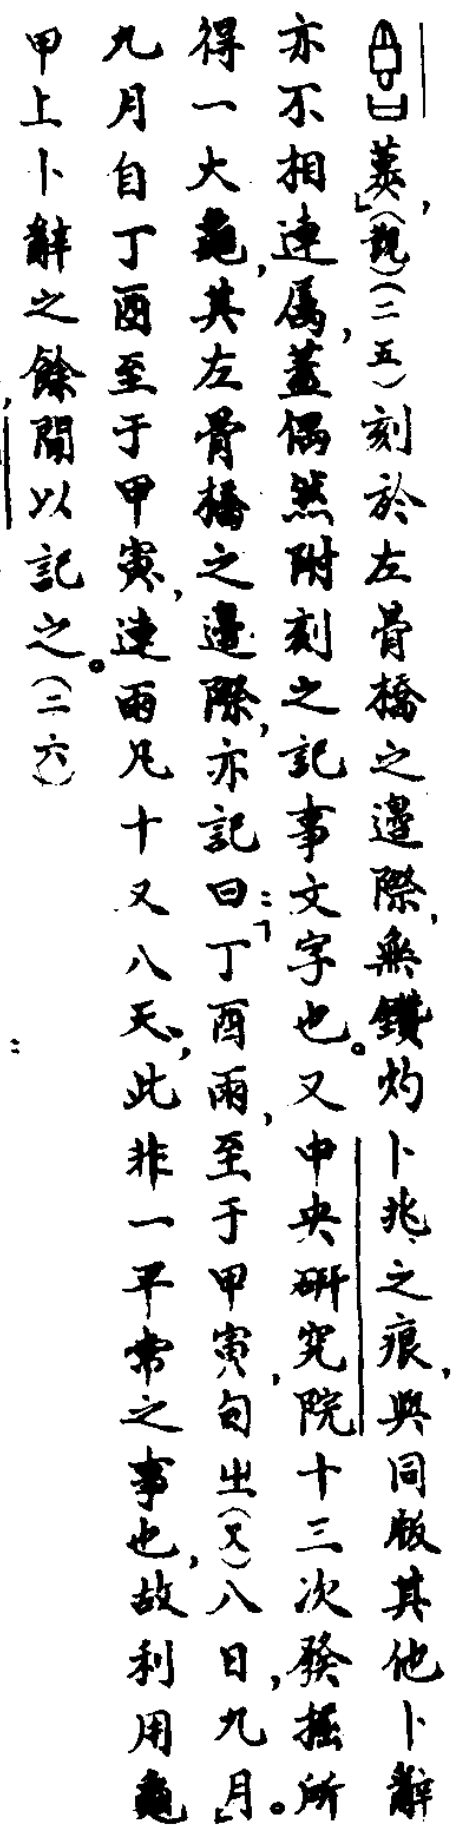 」(二五)刻於左骨橋之邊際,無鑽灼卜兆之痕,與同版其他卜辭
亦不相連屬,蓋偶然附刻之記事文字也。又中央研究院十三次發掘所
得一大龜,其左骨橋之邊際,亦記曰:「丁酉雨,至于甲寅,旬㞢(又)八日,九月」。
九月自丁酉至于甲寅,連雨凡十又八天,此非一平常之事也,故利用龜
甲上卜辭之餘間以記之。(二六)